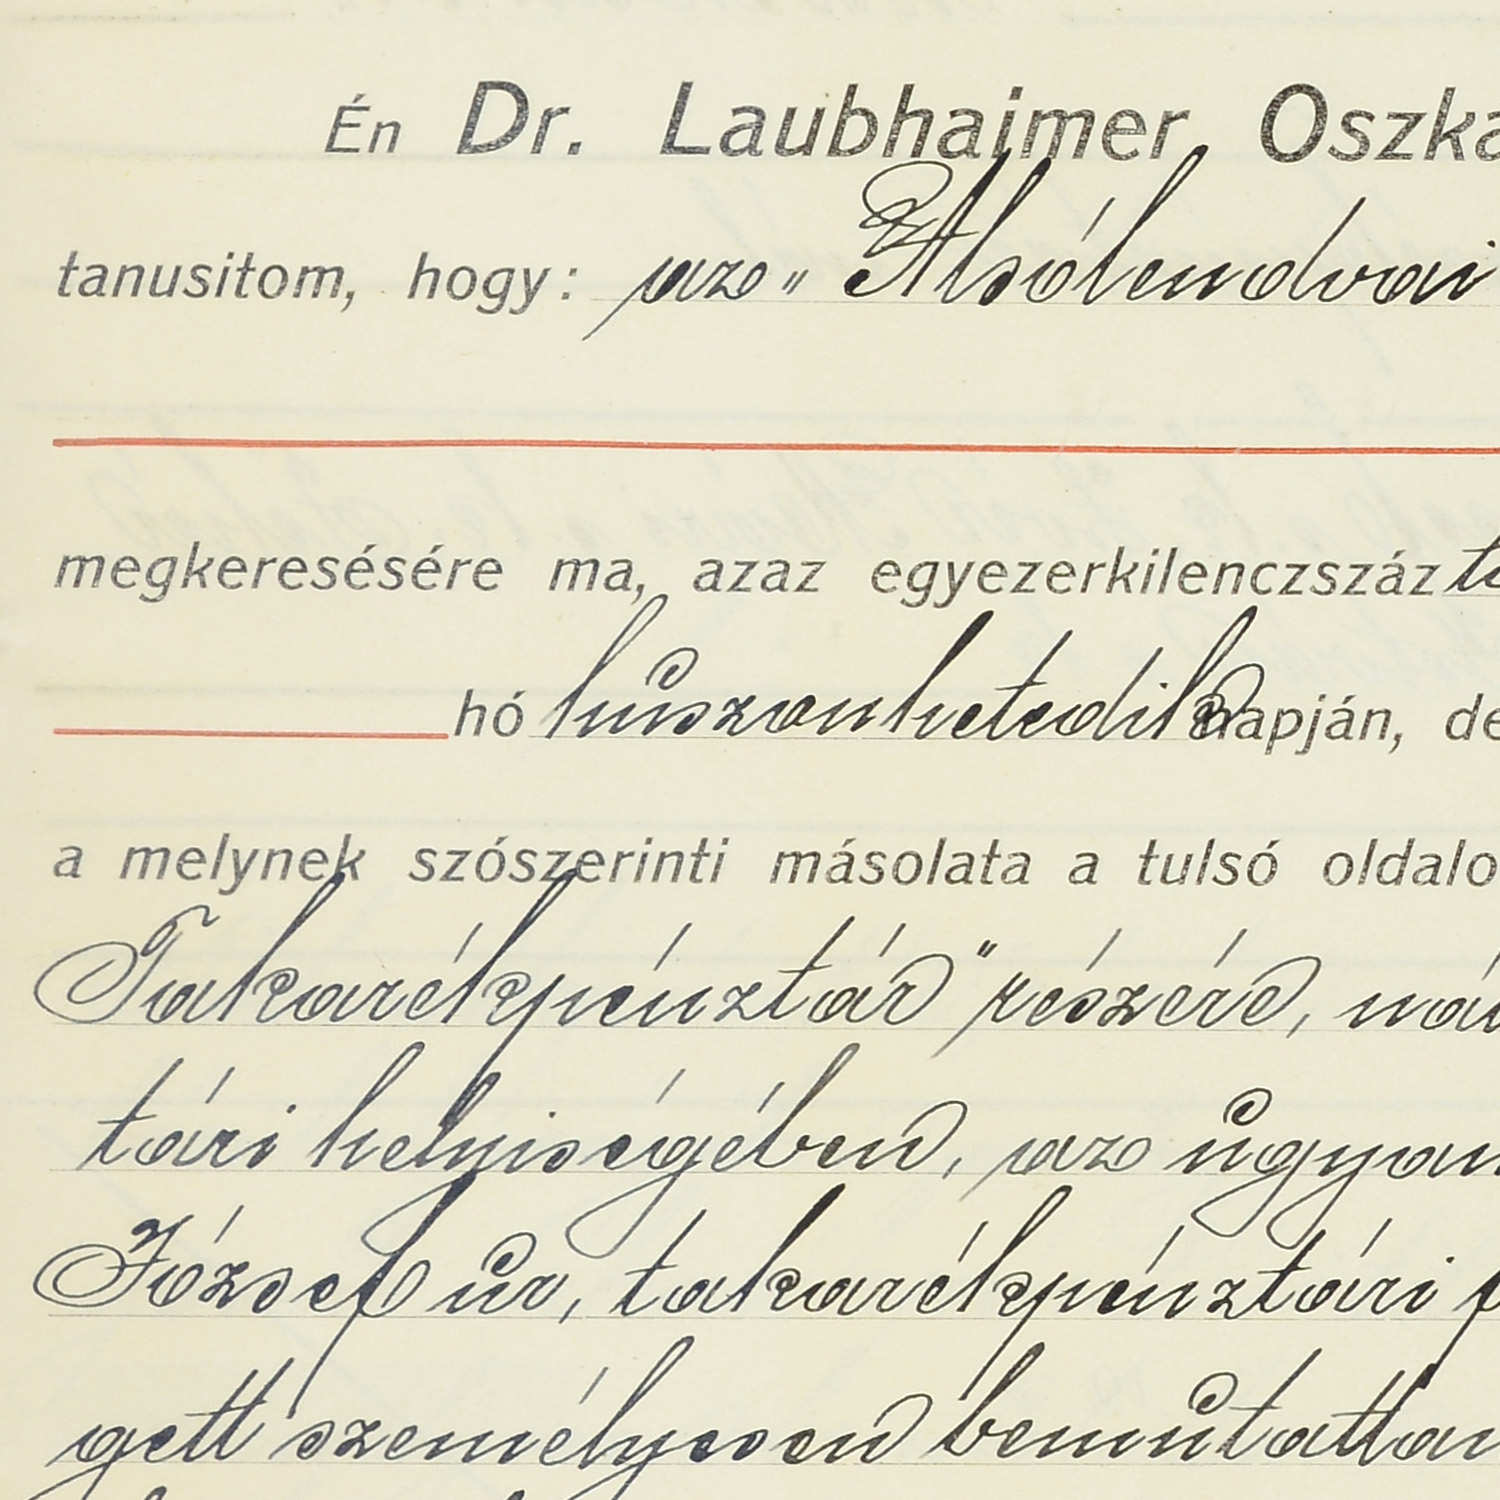 Én Dr. Laubhaimer Oszká
tanusitom, hogy: az „Alsólendvai
megkeresésére ma, azaz egyezerkilenczszáz
hó huszonhetedik napján, de
a melynek szószerinti másolata a tulsó oldalo
Takarékpénztár" részére,
tári helyiségében, az ugyan
József úr, takarékpénztári
gett személyesen bemutattam